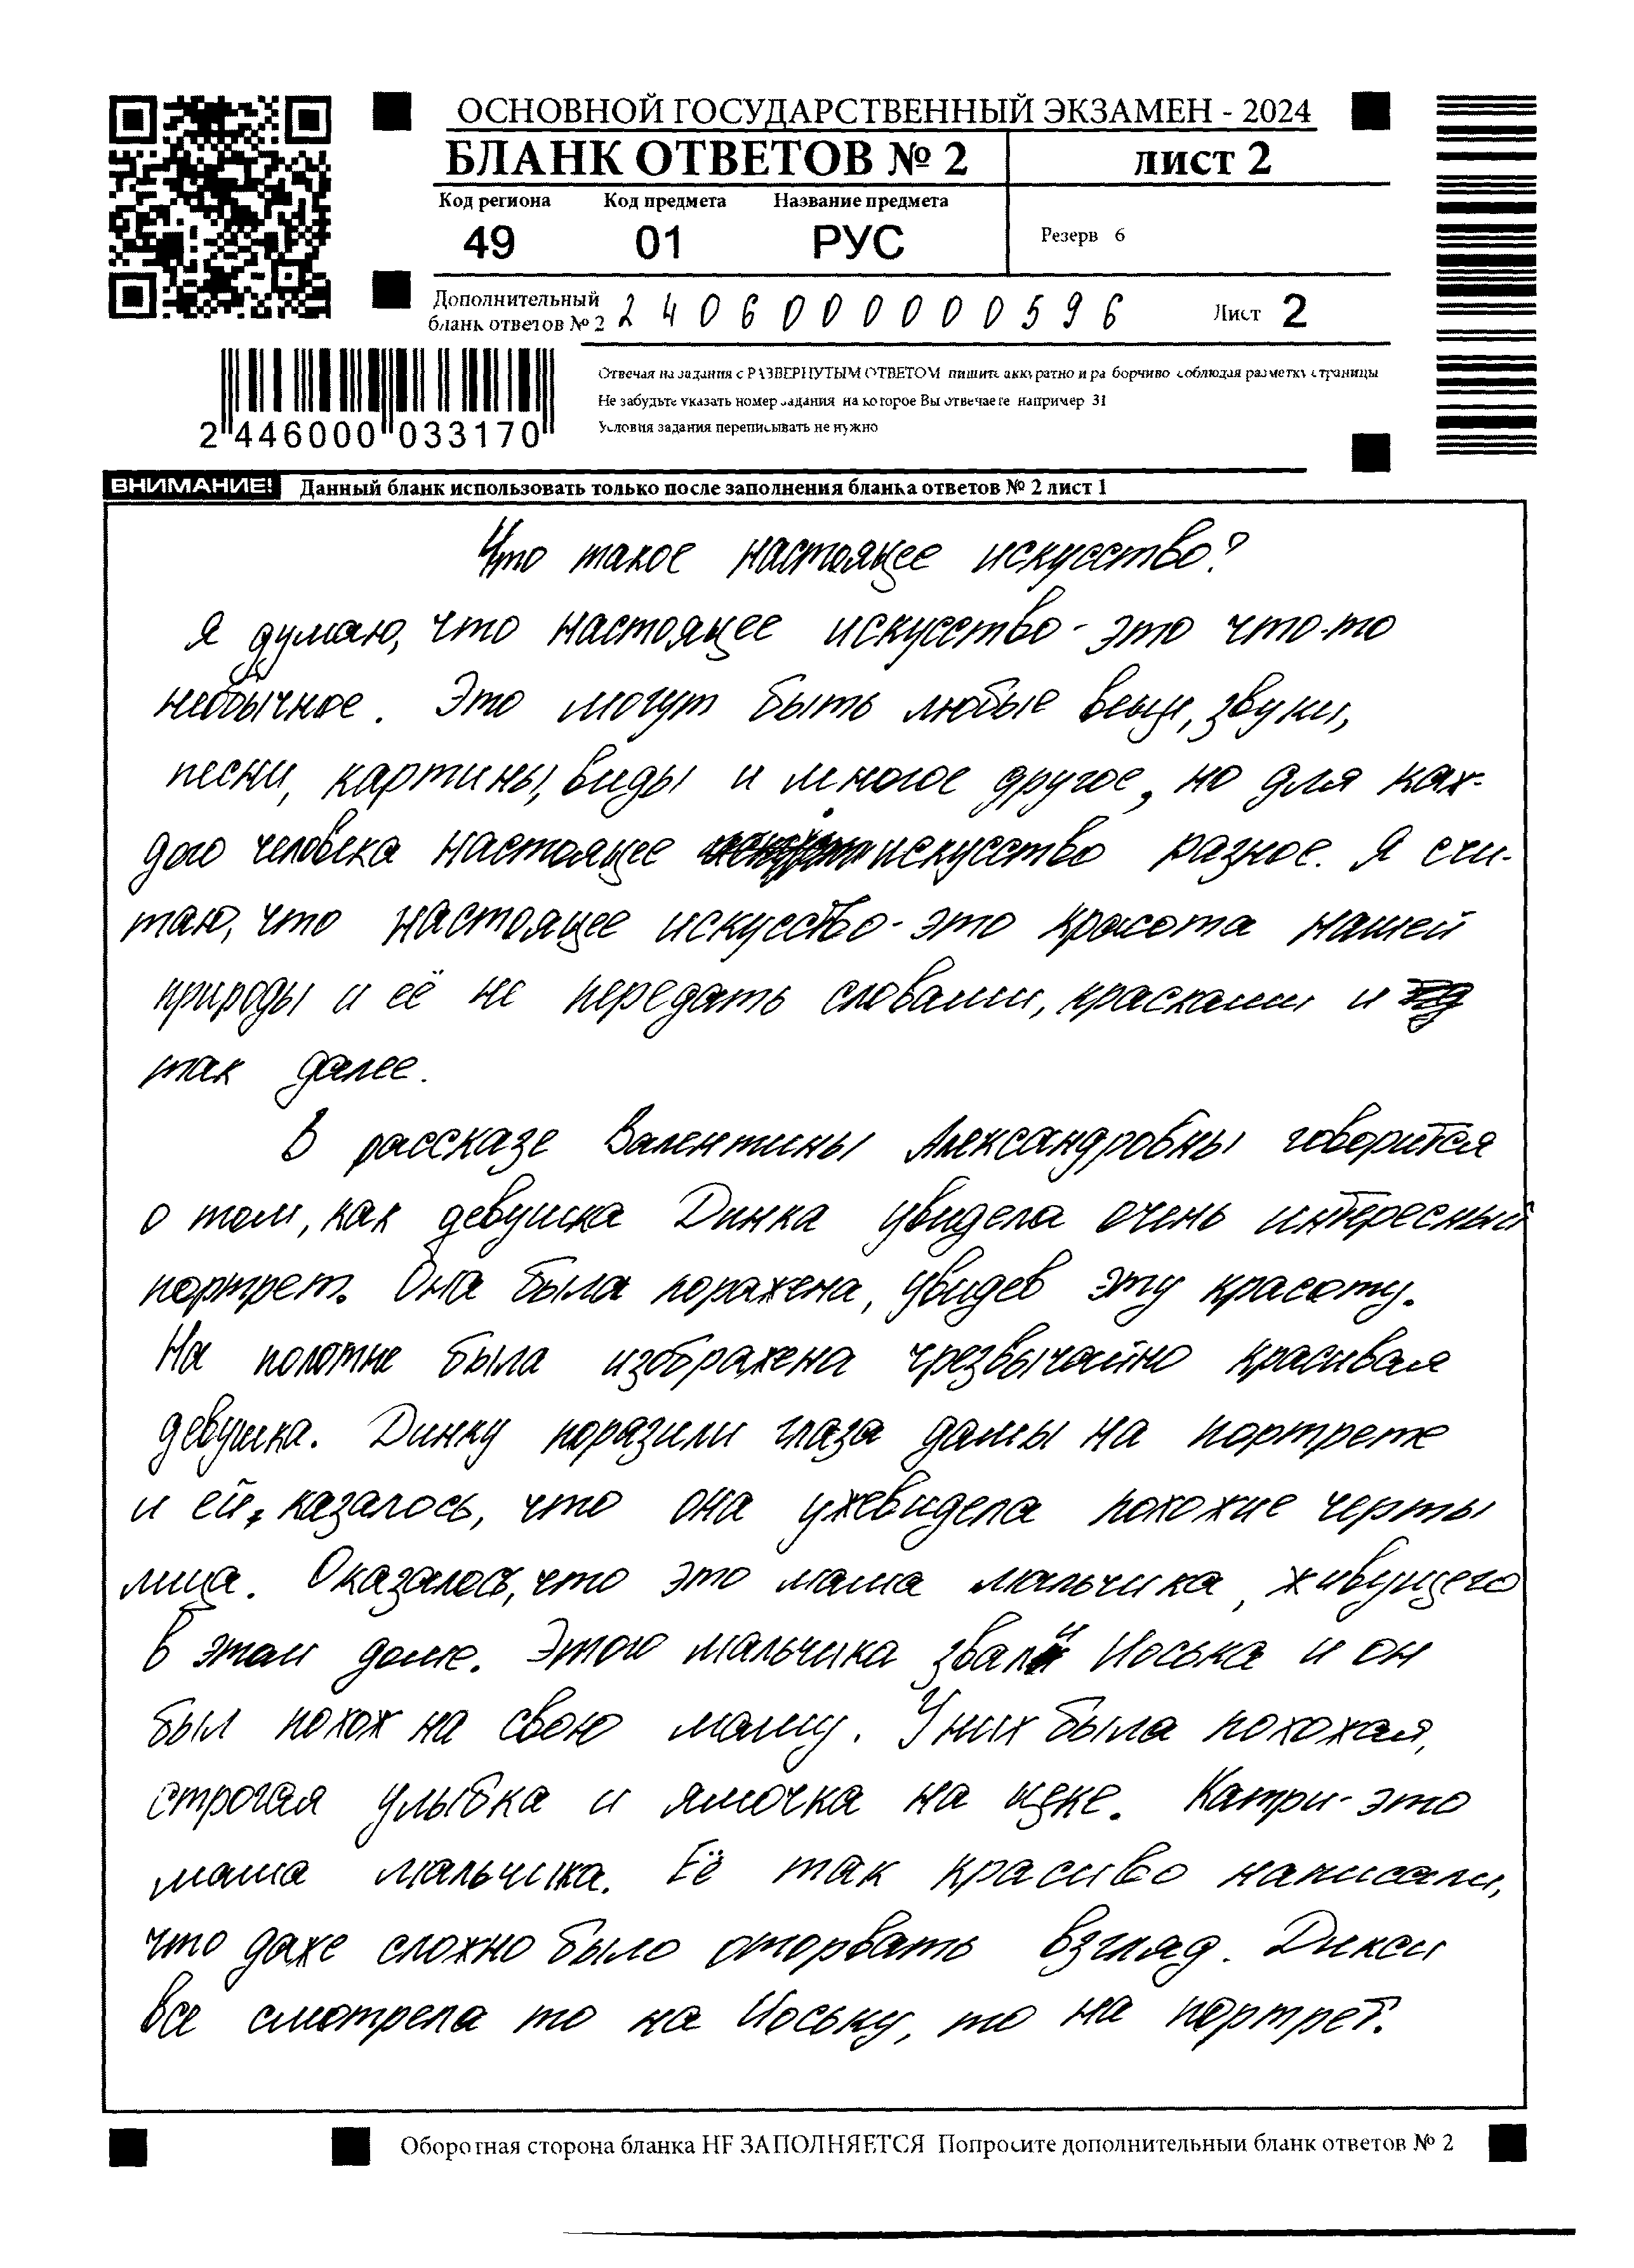 ОСНОВНОЙ ГОСУДАРСТВЕННЫЙ ЭКЗАМЕН - 2024
БЛАНК ОТВЕТОВ № 2
ЛИСТ 2
Код региона Код предмета Название предмета
49 01 РУС
Резерв 6
Дополнительный
бланк ответов № 2
2406000000596
Лист 2
2 446000 033170
Отвечая на задания с РАЗВЕРНУТЫМ ОТВЕТОМ пишите аккуратно и разборчиво соблюдая разметку страницы
Не забудьте указать номер задания на которое Вы отвечаете например 31
Условия задания переписывать не нужно
ВНИМАНИЕ! Данный бланк использовать только после заполнения бланка ответов № 2 лист 1
Что такое настоящее искусство?
Я думаю, что настоящее искусство - это что-то
необычное. Это могут быть любые вещи, звуки,
песни, картины, виды и многое другое, но для каж-
дого человека настоящее искусство разное. Я счи-
таю, что настоящее искусство - это красота нашей
природы и её не передать словами, красками и
так далее.
В рассказе Валентины Александровны говорится
о том, как девушка Динка увидела очень интересный
портрет. Она была поражена, увидев эту красоту.
На полотне была изображена чрезвычайно красивая
девушка. Динку поразили глаза дамы на портрете
и ей, казалось, что она ужевидела похожие черты
лица. Оказалось, что это мама мальчика, живущего
в этом доме. Этого мальчика звали Иоська и он
был похож на свою маму. У них была похожая,
строгая улыбка и ямочка на щеке. Катри - это
мама мальчика. Её так красиво написали,
что даже сложно было оторвать взгляд. Дикси
все смотрела то на Иоську, то на портрет.
Оборотная сторона бланка НЕ ЗАПОЛНЯЕТСЯ Попросите дополнительный бланк ответов № 2